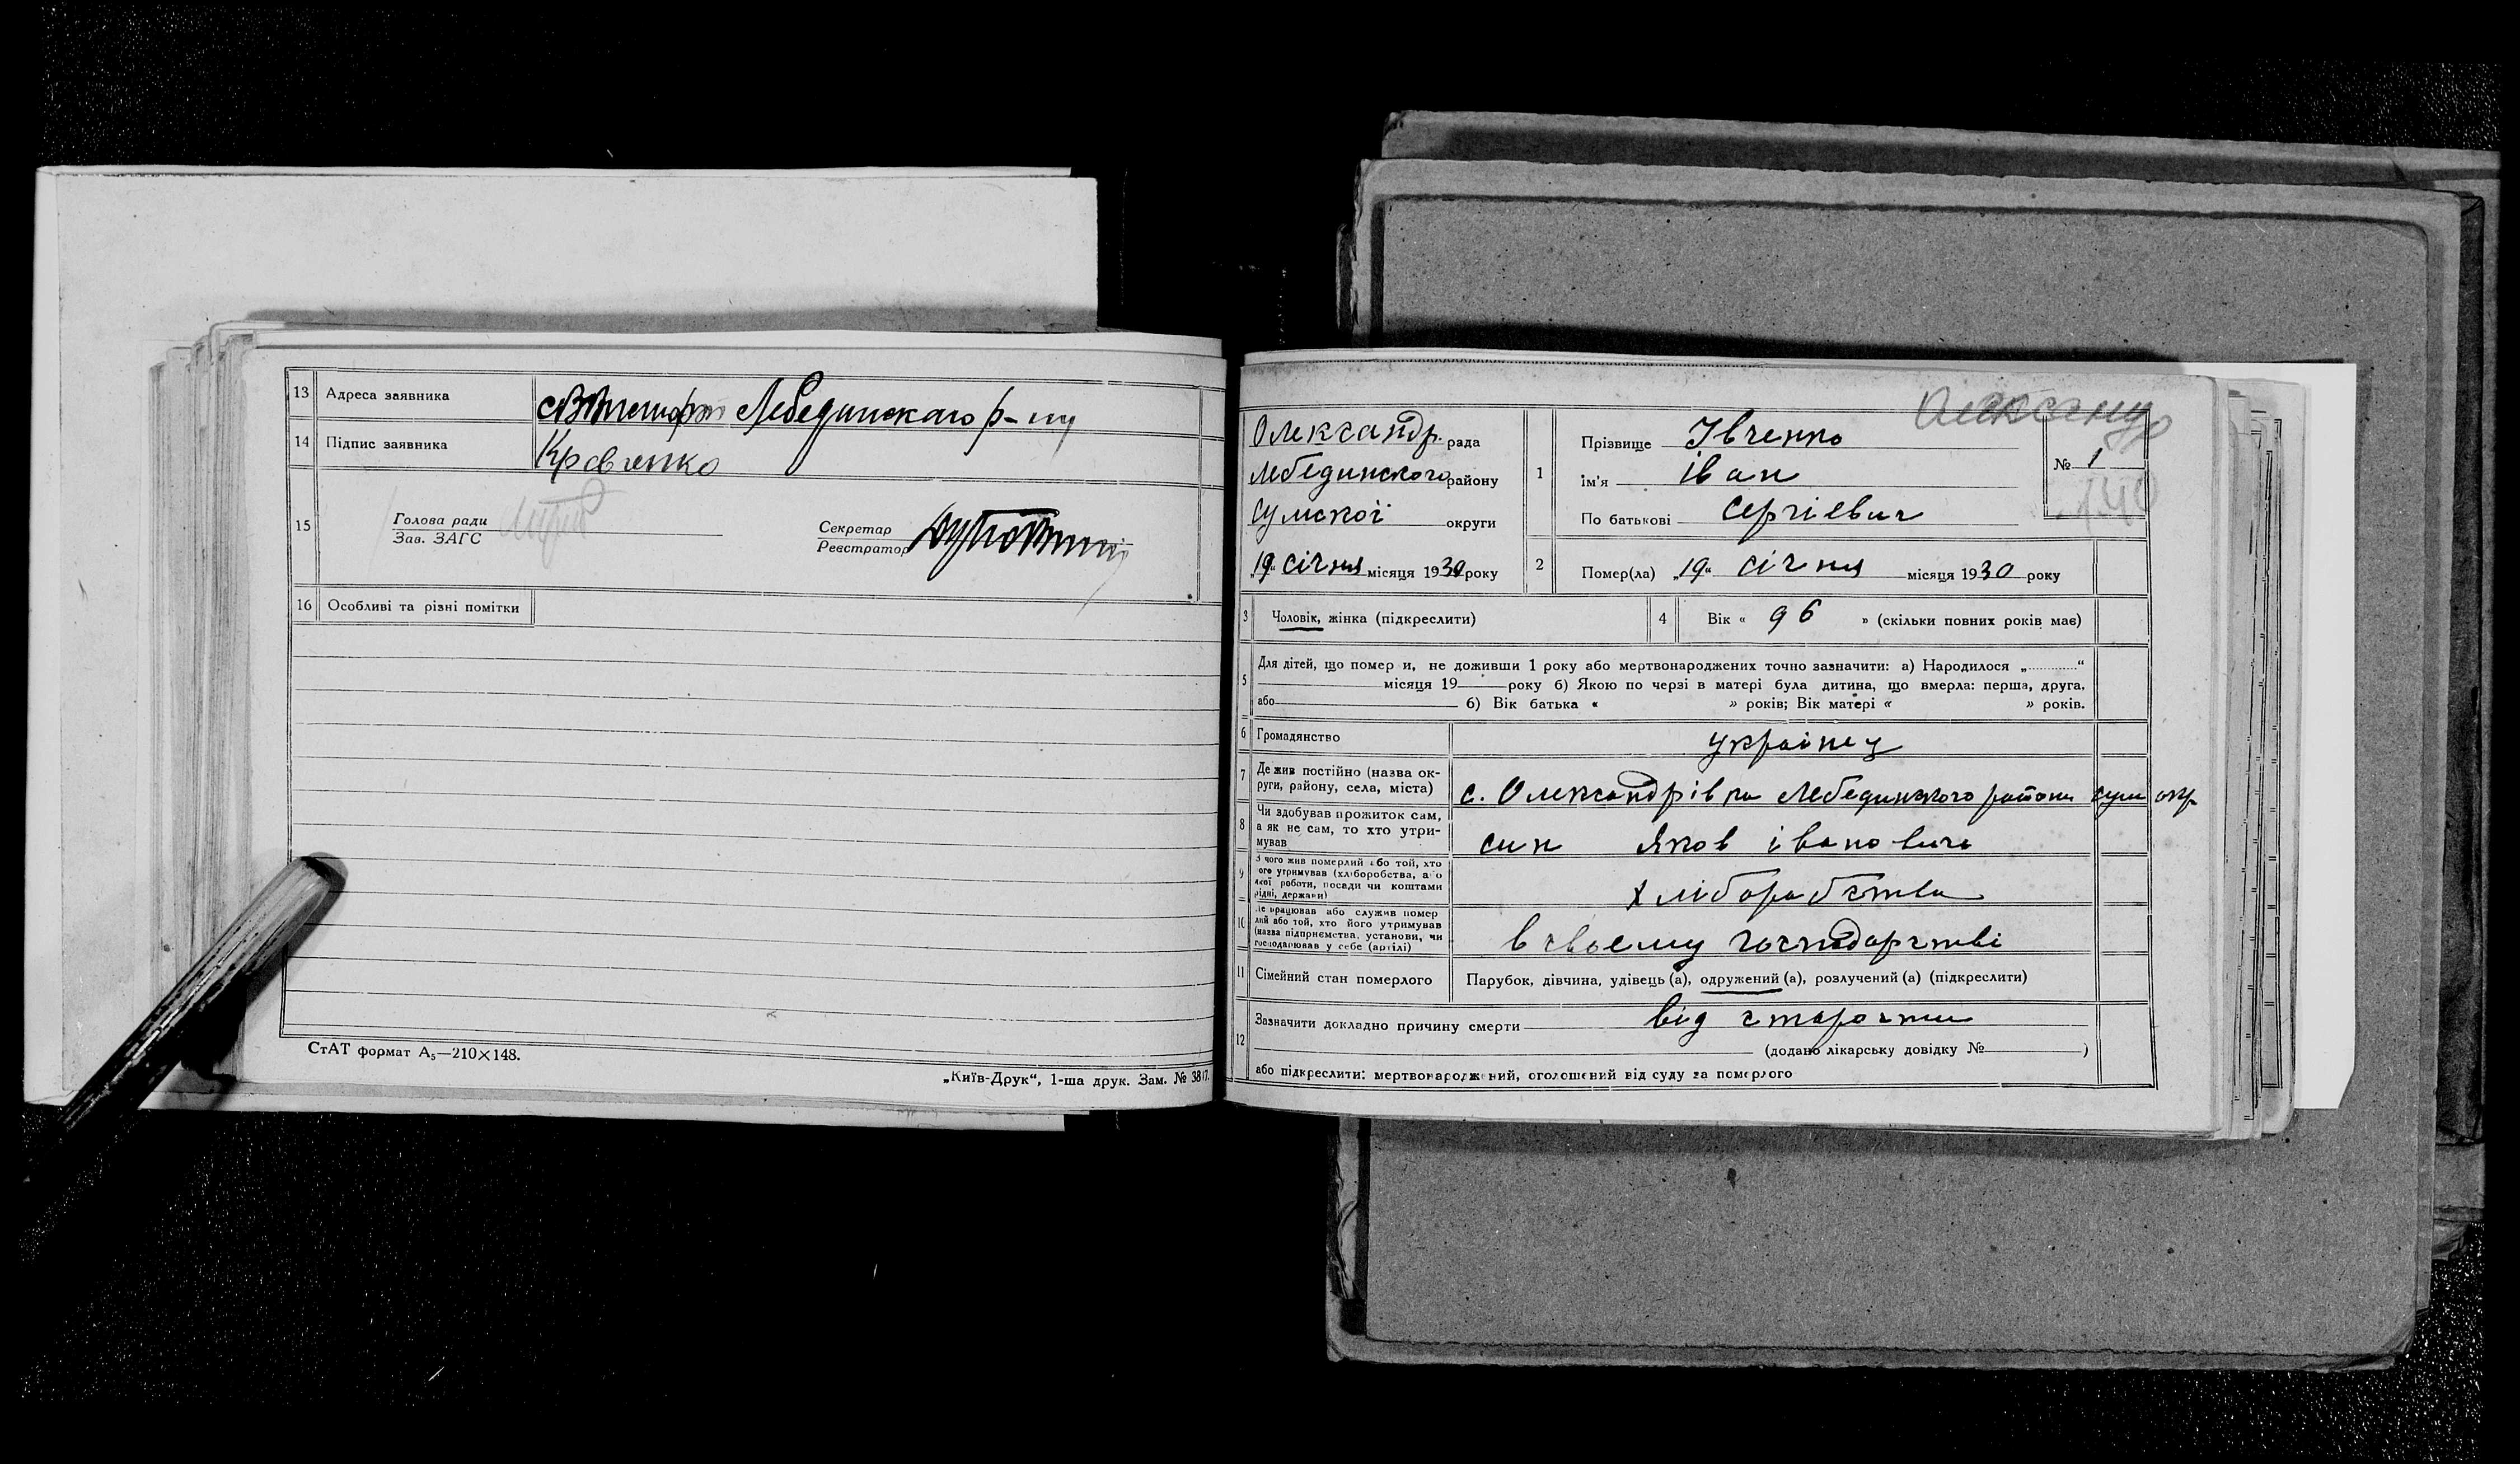 13 Адреса заявника Лебединскаго р-ну
14 Підпис заявника Кравченко
15 Голова ради
Зав. ЗАГС
Секретар
Реєстратор
16 Особливі та різні помітки
СтАТ формат А₅—210×148.
„Київ-Друк“, 1-ша друк. Зам. № 3817.
Олександр. рада
Лебединського району
Сумської округи
„19“ січня місяця 1930 року
1 Прізвище Івченко
ім'я Іван
По батькові Сергіевич
№ 1
2 Помер(ла) „19“ січня місяця 1930 року
3 Чоловік, жінка (підкреслити)
4 Вік « 96 » (скільки повних років має)
5 Для дітей, що помер и, не доживши 1 року або мертвонароджених точно зазначити: а) Народилося „ “
місяця 19 року б) Якою по черзі в матері була дитина, що вмерла: перша, друга,
або б) Вік батька « » років; Вік матері « » років.
6 Громадянство українец
7 Де жив постійно (назва ок-
руги, району, села, міста) с. Олександрівка Лебединського району Сум окр
8 Чи здобував прожиток сам,
а як не сам, то хто утри-
мував син Яков івановичь
9 З чого жив померлий або той, хто
ого утримував (хліборобства, або
якої роботи, посади чи коштами
рідні, держави) хліборобства
10 Де працював або служив помер
лий або той, хто його утримував
(назва підприємства, установи, чи
господарював у себе (артілі) в своєму господарстві
11 Сімейний стан померлого Парубок, дівчина, удівець (а), одружений (а), розлучений (а) (підкреслити)
12 Зазначити докладно причину смерти від старости
(додано лікарську довідку № )
або підкреслити: мертвонароджений, оголошений від суду за померлого